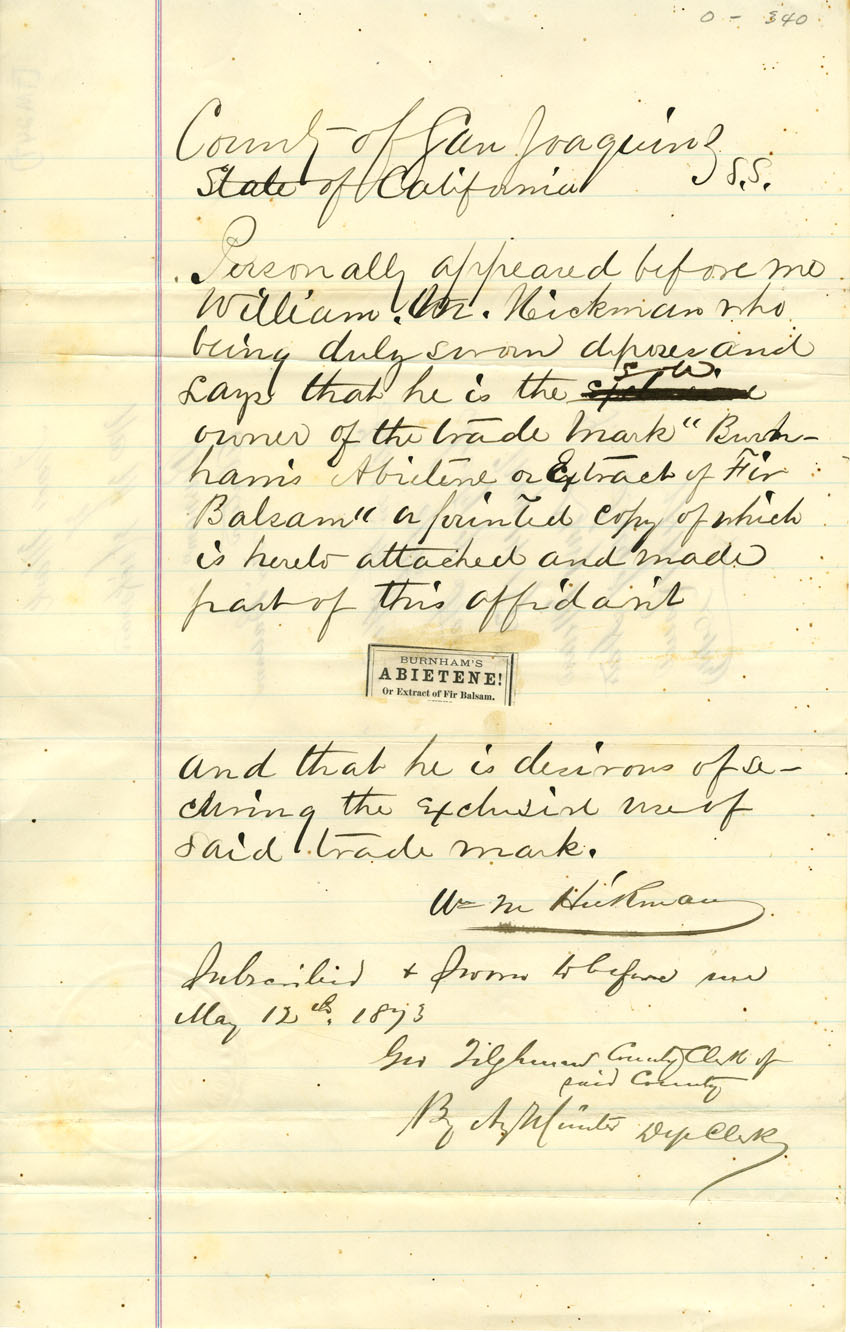 0 - 340
County of San Joaquin }
State of California } S.S.
Personally appeared before me
William. M. Hickman who
being duly sworn deposes and
says that he is the sole
owner of the trade mark "Burn-
ham's Abietene or Extract of Fir
Balsam" a printed copy of which
is hereto attached and made
part of this affidavit
BURNHAM'S
ABIETENE!
Or Extract of Fir Balsam.
and that he is desirous of se-
curing the exclusive use of
said trade mark.
Wm M Hickman
Subscribed & Sworn to before me
May 12th. 1873
Geo Tilghman County Clerk of
said County
By Dep Clerk